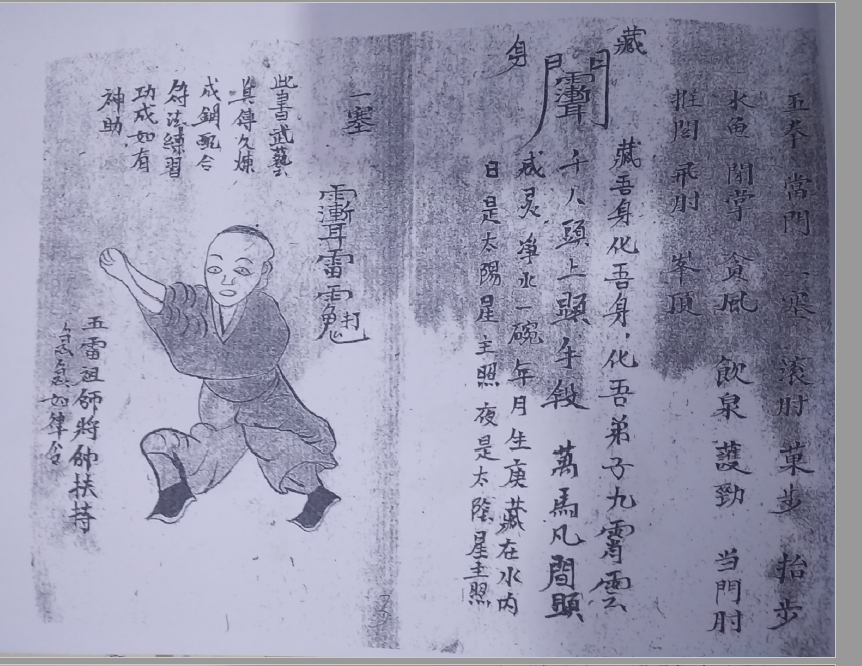 五拳 當門 一塞 滾肘 菓步 抬步
水魚 閉掌 貪風 飲泉 護勁 当門肘
推閂 飛肘 峯頂
藏 藏吾身化吾身化吾弟子九霄雲
千人頭上顕手段 萬馬凡間顕
身 咸灵 净水一碗年月生庚藏在水内
日是太陽星主照 夜是太陰星主照
一塞
打
此書武藝
真傳久煉
成鋼配合
符法練習
功成如有
神助
五雷祖師將帥扶持
急急如律令